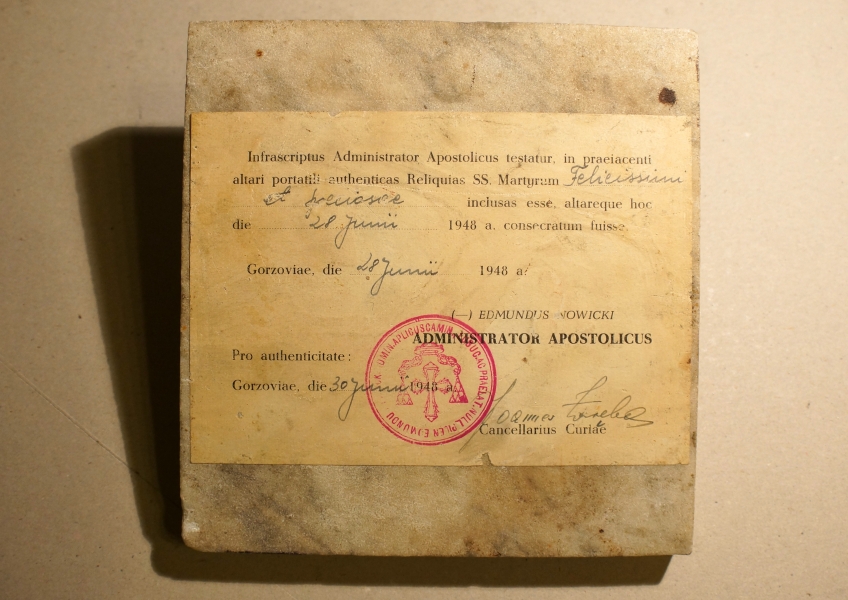 Infrascriptus Administrator Apostolicus testatur, in praeiacenti
altari portatili authenticas Reliquias SS. Martyrum Felicissimi
et inclusas esse, altareque hoc
die 28 Junii 1948 a. consecratum fuisse.
Gorzoviae, die 28 Junii 1948 a.
(—) EDMUNDUS NOWICKI
ADMINISTRATOR APOSTOLICUS
Pro authenticitate:
Gorzoviae, die 30 Junii 1948 a.
Joannes
Cancellarius Curiae